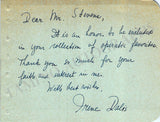 Dear Mr. Stevens,
It is an honor to be included
in your collection of operatic favorites.
Thank you so much for your
faith and interest in me.
With best wishes,
Irene Dalis